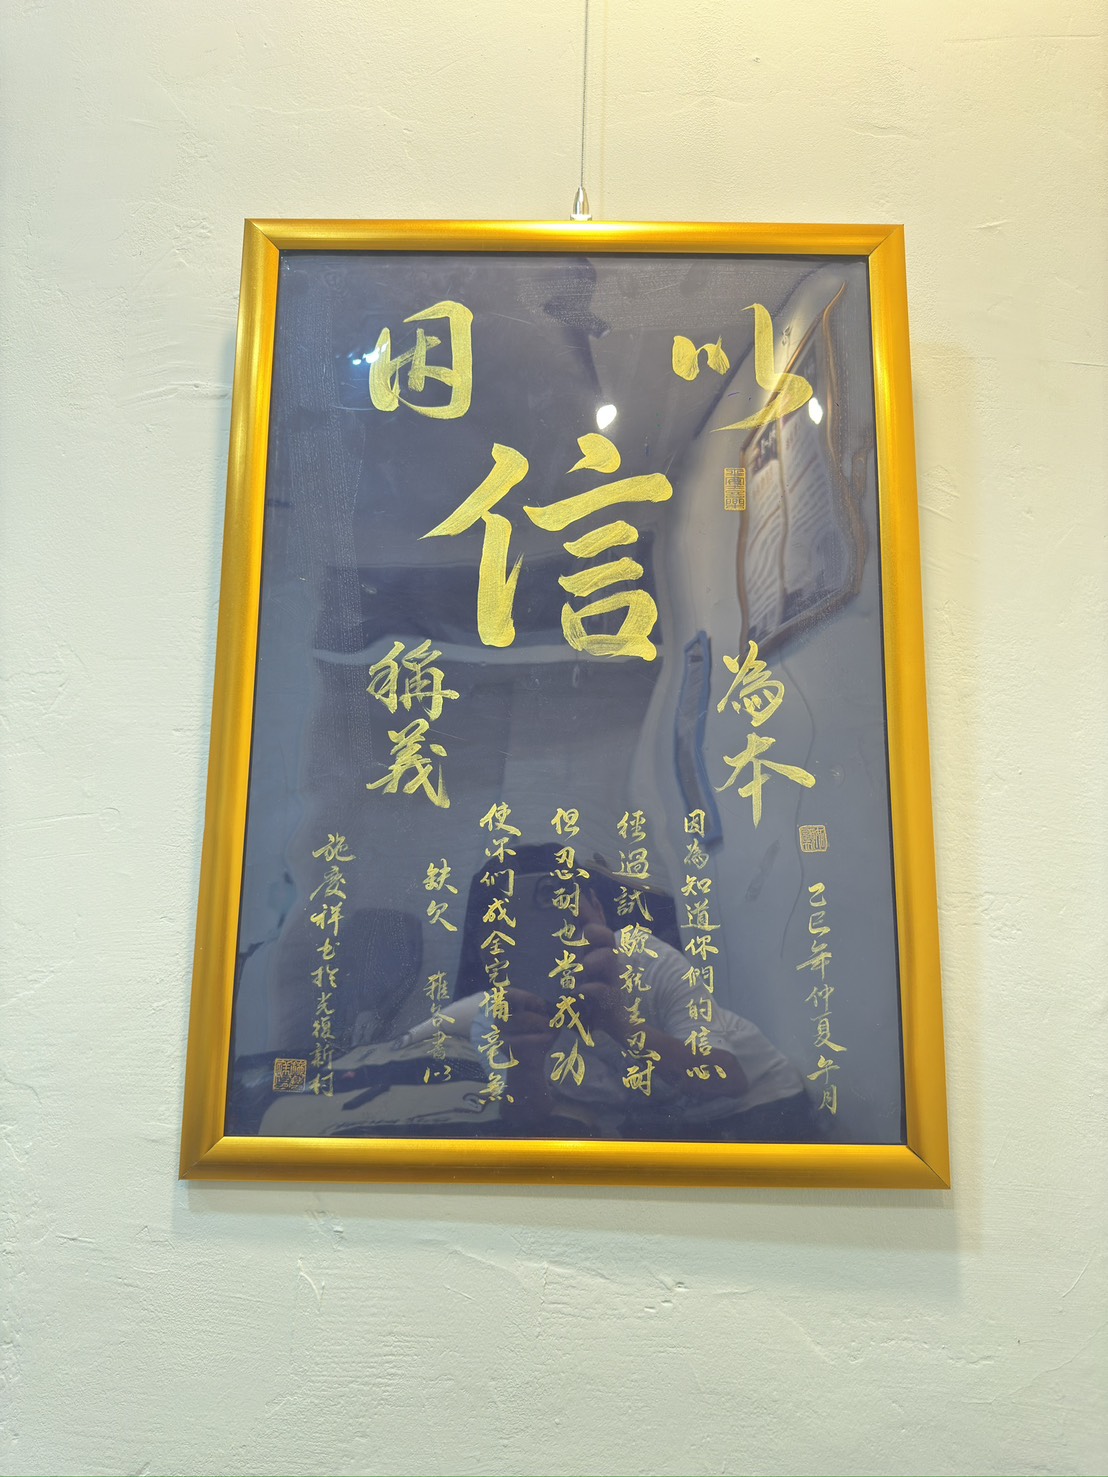 以
信
為本
因
稱義
乙巳年仲夏午月
因為知道你們的信心
經過試驗就生忍耐
但忍耐也當成功
使你们成全完備毫無
缺欠 雅各書1:3
施慶祥书於光復新村